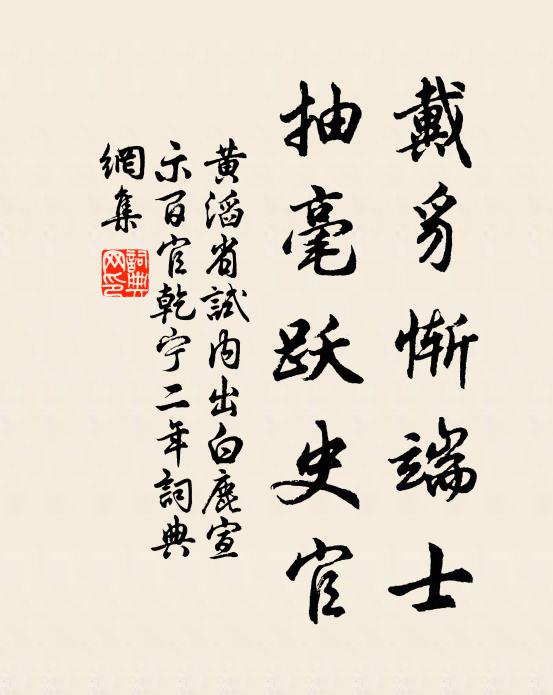 戴豸慚端士
抽毫跃史官
黄滔省試内出白鹿宣
示百官乾宁二年詞典
網集
詞典
网印